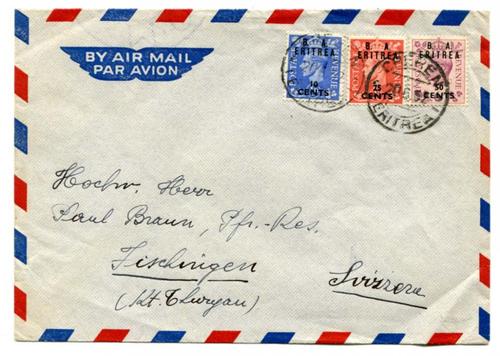 BY AIR MAIL
PAR AVION
B. A.
ERITREA
10
CENTS
B. A.
ERITREA
25
CENTS
B. A.
ERITREA
50
CENTS
REVENUE
ERITREA
Hochw. Herr
Paul Braun, Pfr.-Res.
Fischingen
(Kt. Thurgau)
Svizzera